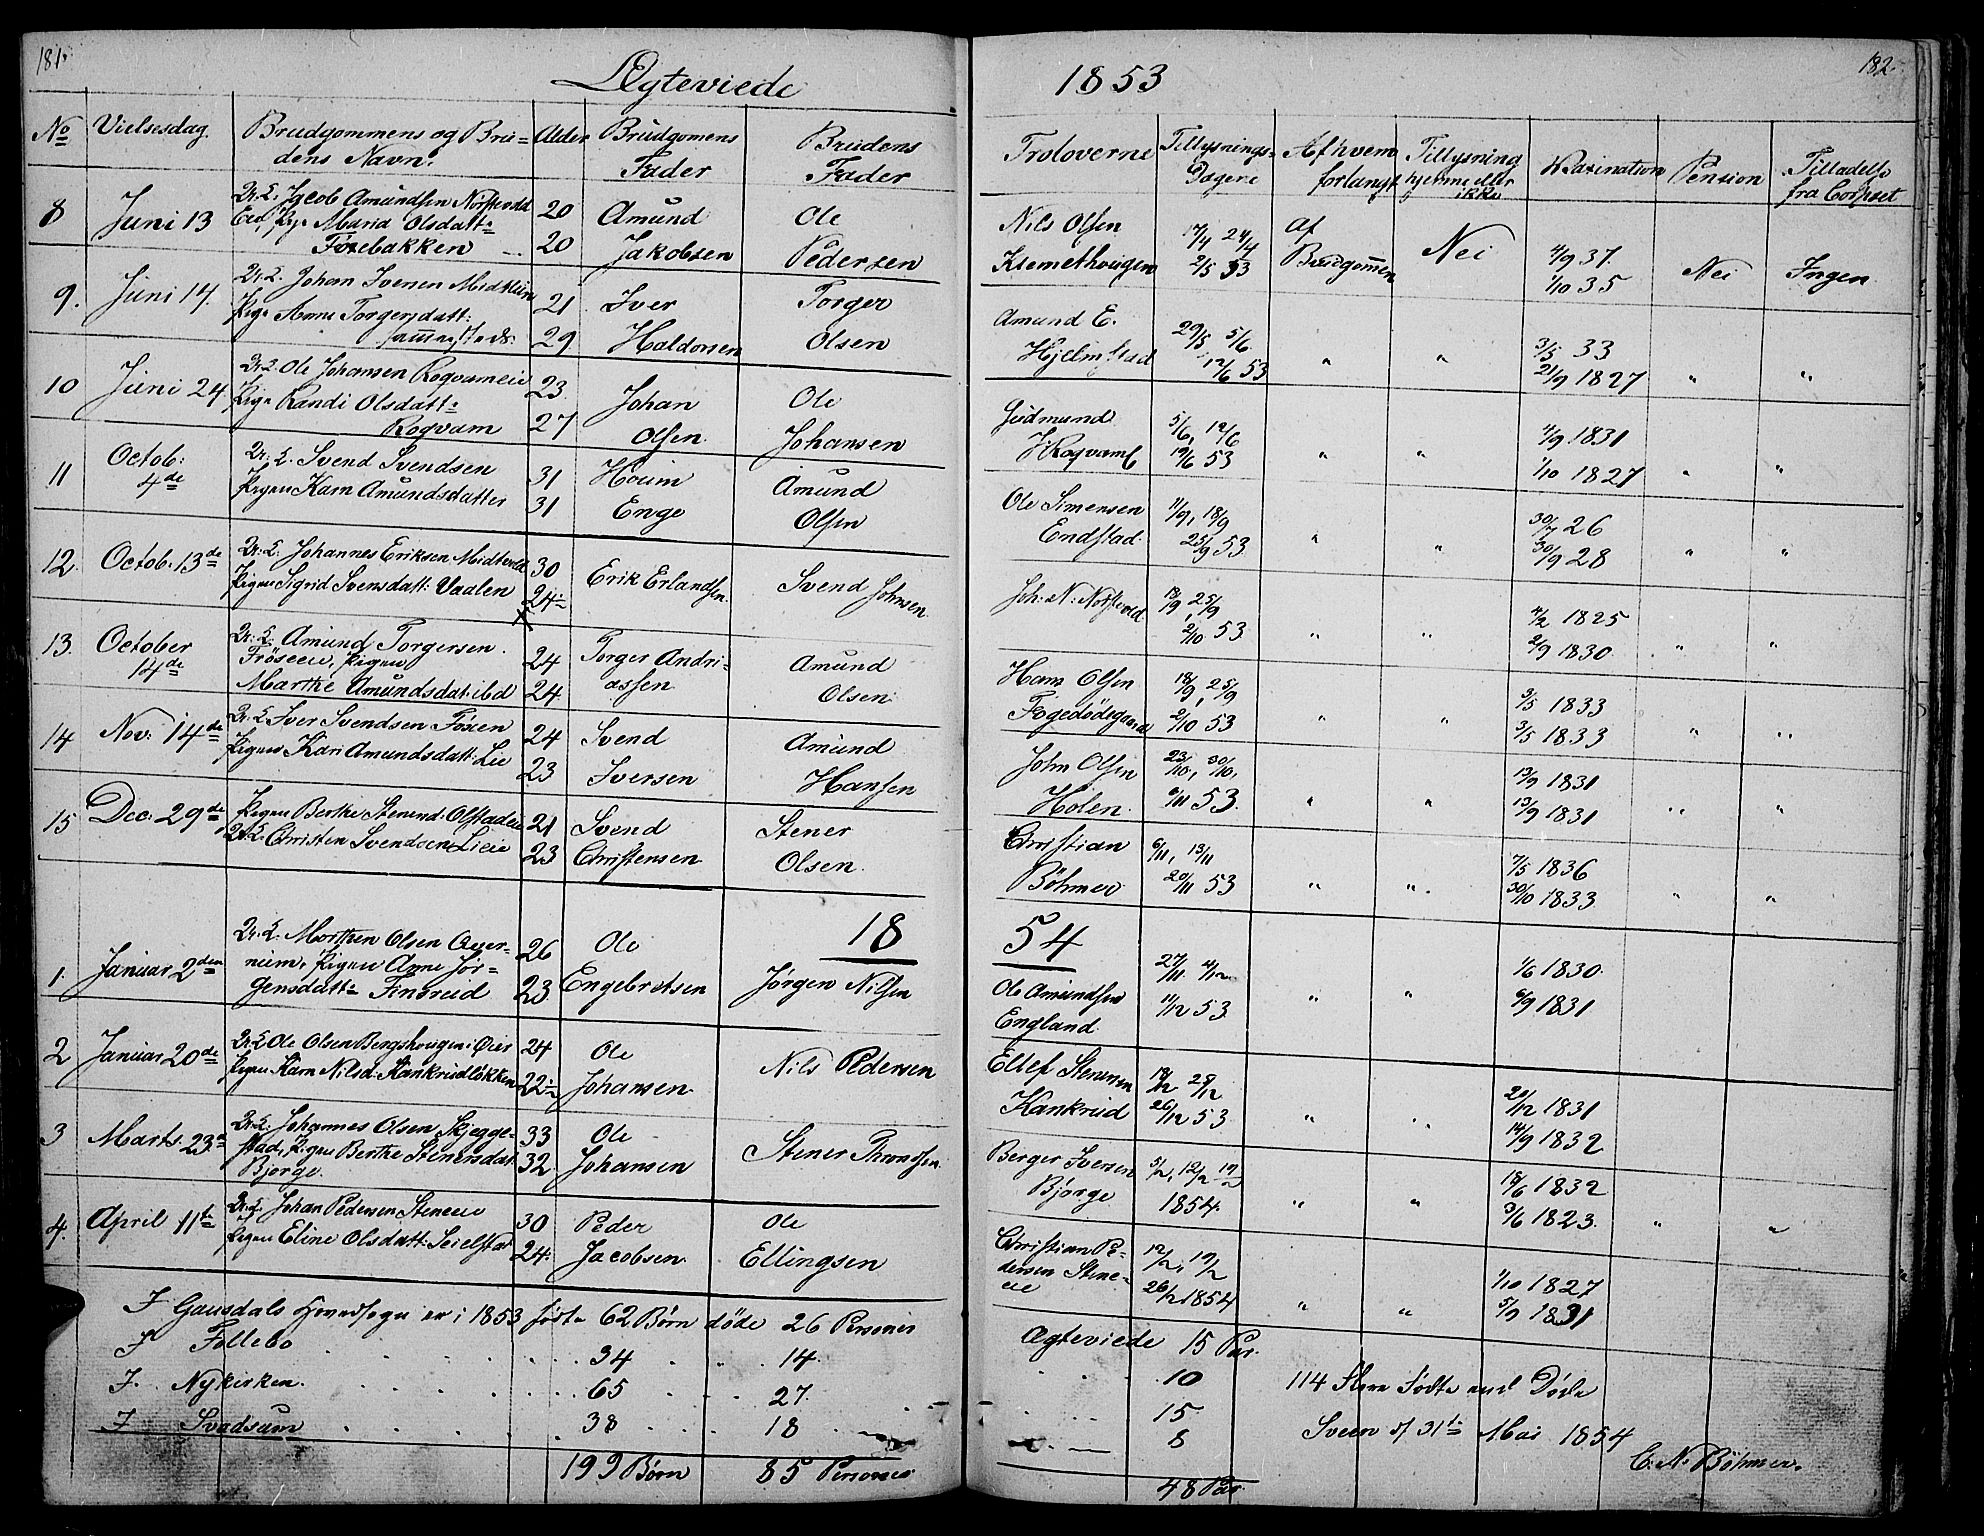 181.
Ægteviede
No
Vielsesdag.
Brudgommens og Bru-
dens Navn.
Alder
Brudgomens
Fader
Brudens
Fader
8
Juni 13
Jacob Amundsen
Maria Olsdatt:
20
20
Amund
Jakobsen
Ole
Pedersen
9.
Juni 14.
Johan Iversen
Pige Anne Torgersdatt:
21
29
Iver
Haldorsen
Torger
Olsen
10
Juni 24
Ole Johansen
Pige Randi Olsdatt:
Rogvam
23
27
Johan
Olsen.
Ole
Johansen
11
Octob:
4de
Svend Svendsen
Pigen Karn Amundsdatter
31
31
Hoüm
Enge
Amund
Olsen
12.
Octob. 13de
Johannes Eriksen
Pigen Sigrid Svensdatt: Vaalen
30
24
Erik Erlandsen.
Svend Johnsen
13.
October
14de
Amund Torgersen.
Pigen
Marthe Amundsdat: ibd
24
24
Torger Andri-
assen
Amund
Olsen
14
Nov: 14de
Iver Svendsen
Pigen Kari Amundsdatt: Lie
24
23
Svend
Iversen
Amund
Hansen
15
Dec: 29de
Pigen Berthe
Christen Svendsen
21
23
Svend
Christensen
Stener
Olsen.
18
1.
Januar 2den
Morthen Olsen
Pigen Anne Jør-
gensdatt:
26
23
Ole
Engebretsen
Jørgen Nilsen
2
Januar 20de
Ole Olsen Bergshougen
Pigen Karn Nilsd: Kankrudløkken
24
22
Ole
Johansen
Nils Pedersen
3
Marts 23
Johannes Olsen Skjegge-
stad, Pigen Berthe Stenersdat
Bjørge.
33
32
Ole
Johansen
Stener
4.
April 11te
Johan Pedersen Steneeie
Pigen Eline Olsdatt:
30
24.
Peder
Jacobsen.
Ole
Ellingsen
I Gausdals Hovedsogn er i 1853 født 62 Børn døde 26 Personer
I Follebo 34 14.
I. Nykirken. 65 27.
I Svadsum 38 18
199 Børn 85 Personer
182.
1853
Troloverne
Tillysnings-
Dagene
Af hvem
forlangt
Tillysning
hjemme eller
ikke
Waxination
Pension
Tilladelse
fra Corpset
Nils Olsen
Klemethougen
17/4 24/4
2/5 53
Af
Brudgommen
Nei
4/9 37.
1/10 35
Nei
Ingen
Amund E.
Hjelmstad
29/5 5/6.
12/6 53
"
"
3/5 33
21/9 1827
"
"
Gudmund
5/6, 12/6
19/6 53
"
"
4/9 1831
1/10 1827
"
"
Ole Simensen
Endstad.
11/9, 18/9
25/9 53.
"
"
30/7 26
30/9 28
"
"
18/9, 25/9
2/10 53
"
"
4/2 1825
2/9 1830.
"
"
Hans Olsen
18/9, 25/9
2/10 53
"
"
3/5 1833
3/5 1833
"
"
John Olsen
Holen.
23/10, 30/10,
6/11 53.
"
"
13/9 1831
13/9 1831
"
"
Christian
Böhmer
6/11, 13/11
20/11 53
"
"
7/5 1836
30/10 1833
"
"
54
Ole Amundsen
England.
27/11 4/12
11/12 53.
"
"
1/6 1830.
6/9 1831
Ellef Stenersen
Kankrud
18/12 25/12
26/12 53
"
"
20/12 1831
14/9 1832
Berger Iversen
Bjørge
5/2, 12/2 19/2
1854.
"
"
18/6 1832
3/6 1823.
"
"
Christian Pe-
dersen Stene-
eie
12/2, 19/2
26/2 1854
"
"
1/10 1827
5/9 1831
Ægteviede 15 Par.
10
15.
8
48 Par
114 flere Fødte end Døde
31te Mai 1854
C. N. Böhmer.